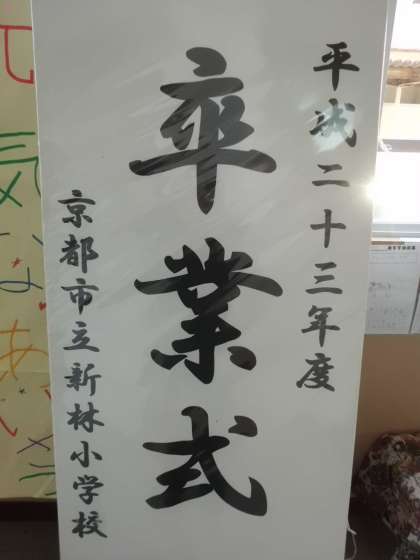 平成二十三年度
卒業式
京都市立新林小学校
元
気